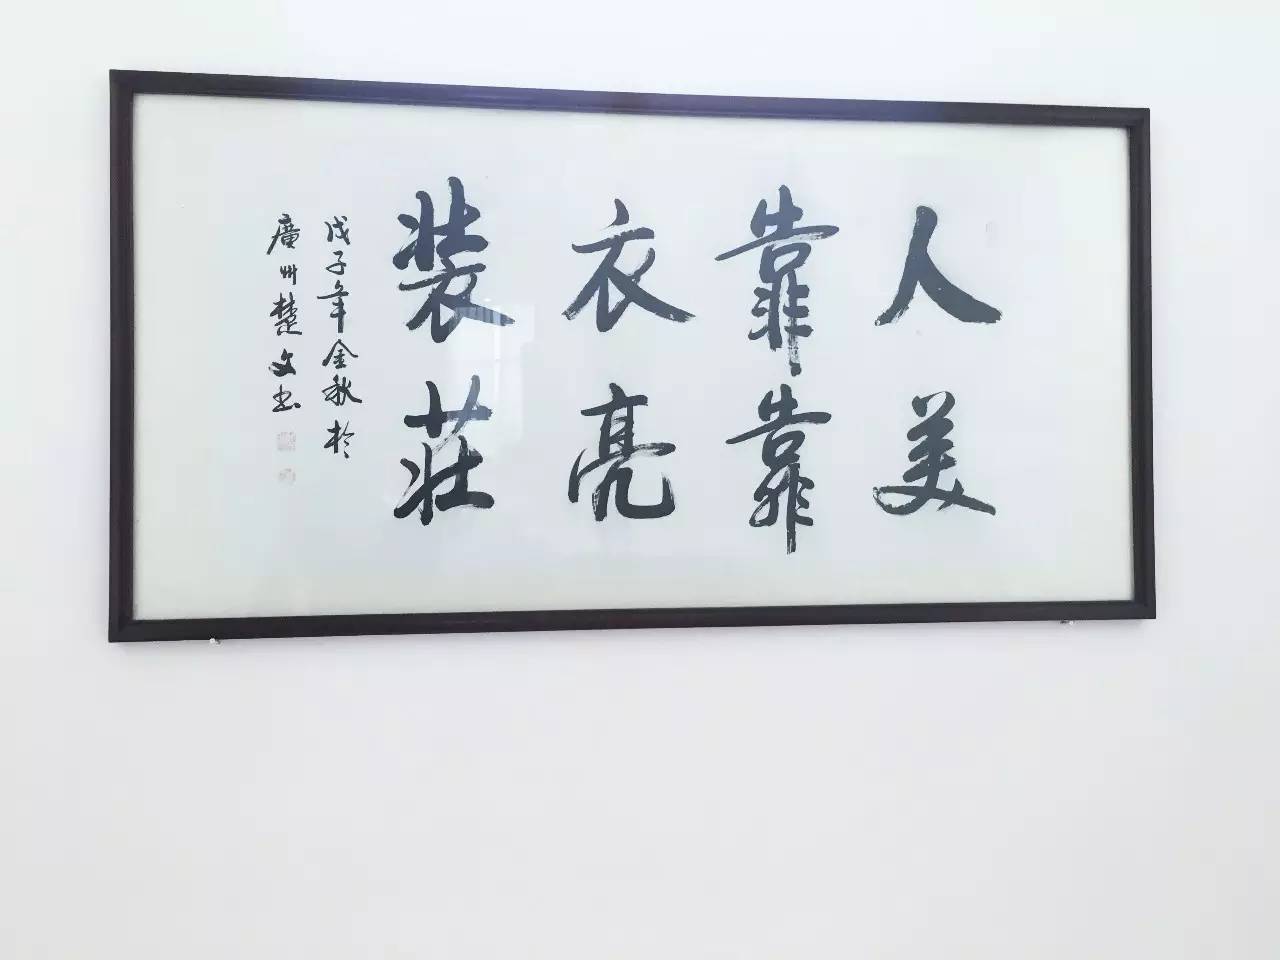 人靠衣裝
美靠亮莊
戊子年金秋於
廣州楚文书